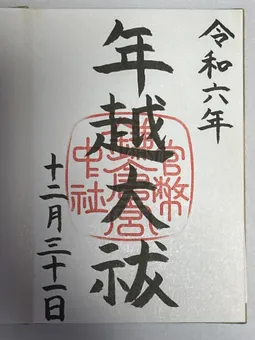 令和六年
年越大祓
十二月三十一日
官幣
中社